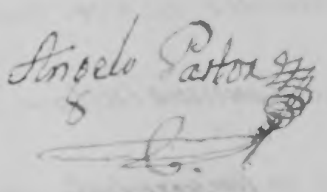 Angelo Pastor